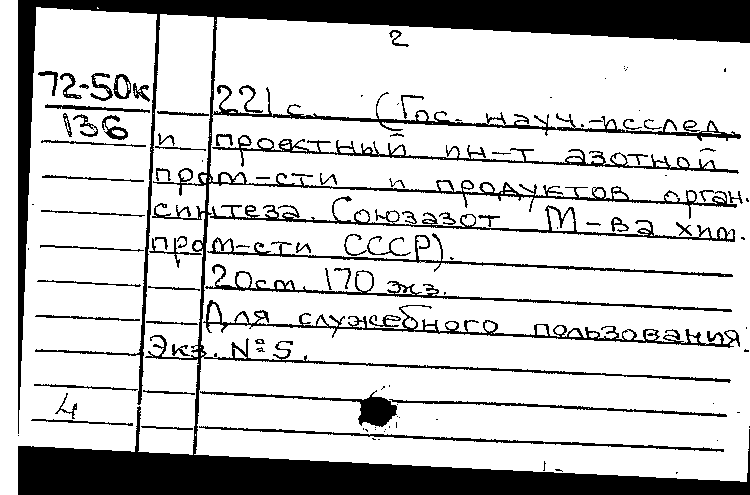 2
72-50к
136
221 с. (Гос. науч.-исслед.
и проектный ин-т азотной
пром-сти и продуктов орган.
синтеза. Союзазот М-ва хим.
пром-сти СССР).
20см. 170 экз.
Для служебного пользования
Экз. № 5.
4